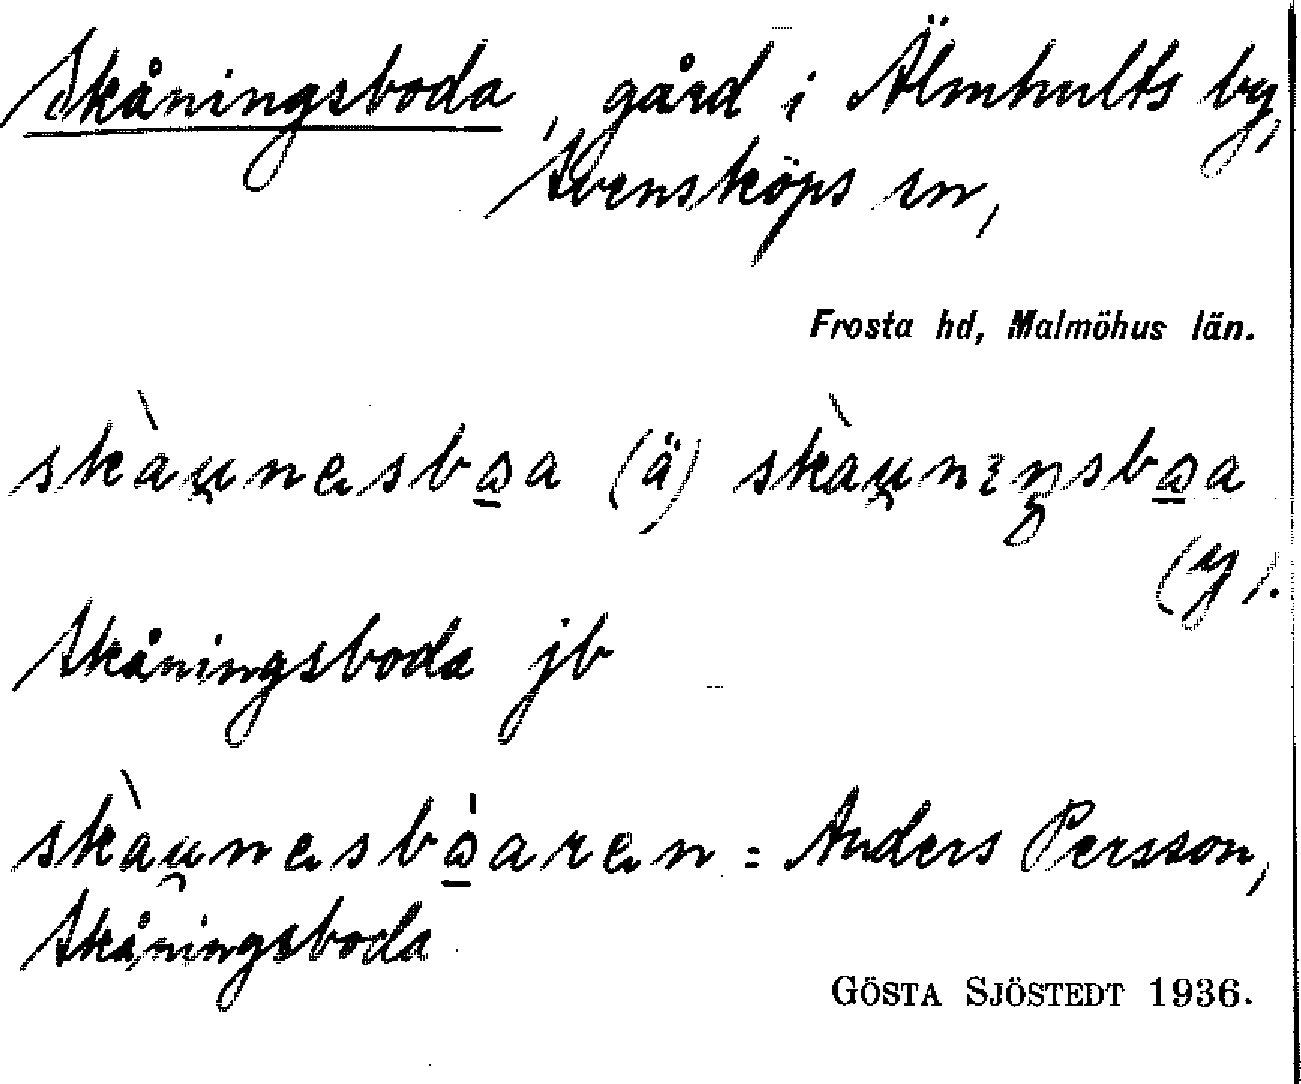 Skåningsboda, gård i Älmhults by,
Svensköps sn,
Frosta hd, Malmöhus län.
skàu̯nesbꜵ̱a (ä) skàu̯nıŋsbꜵ̱a
(y).
Skåningsboda jb
skàu̯nesbꜵ̱́aren = Anders Persson,
Skåningsboda
GÖSTA SJÖSTEDT 1936.